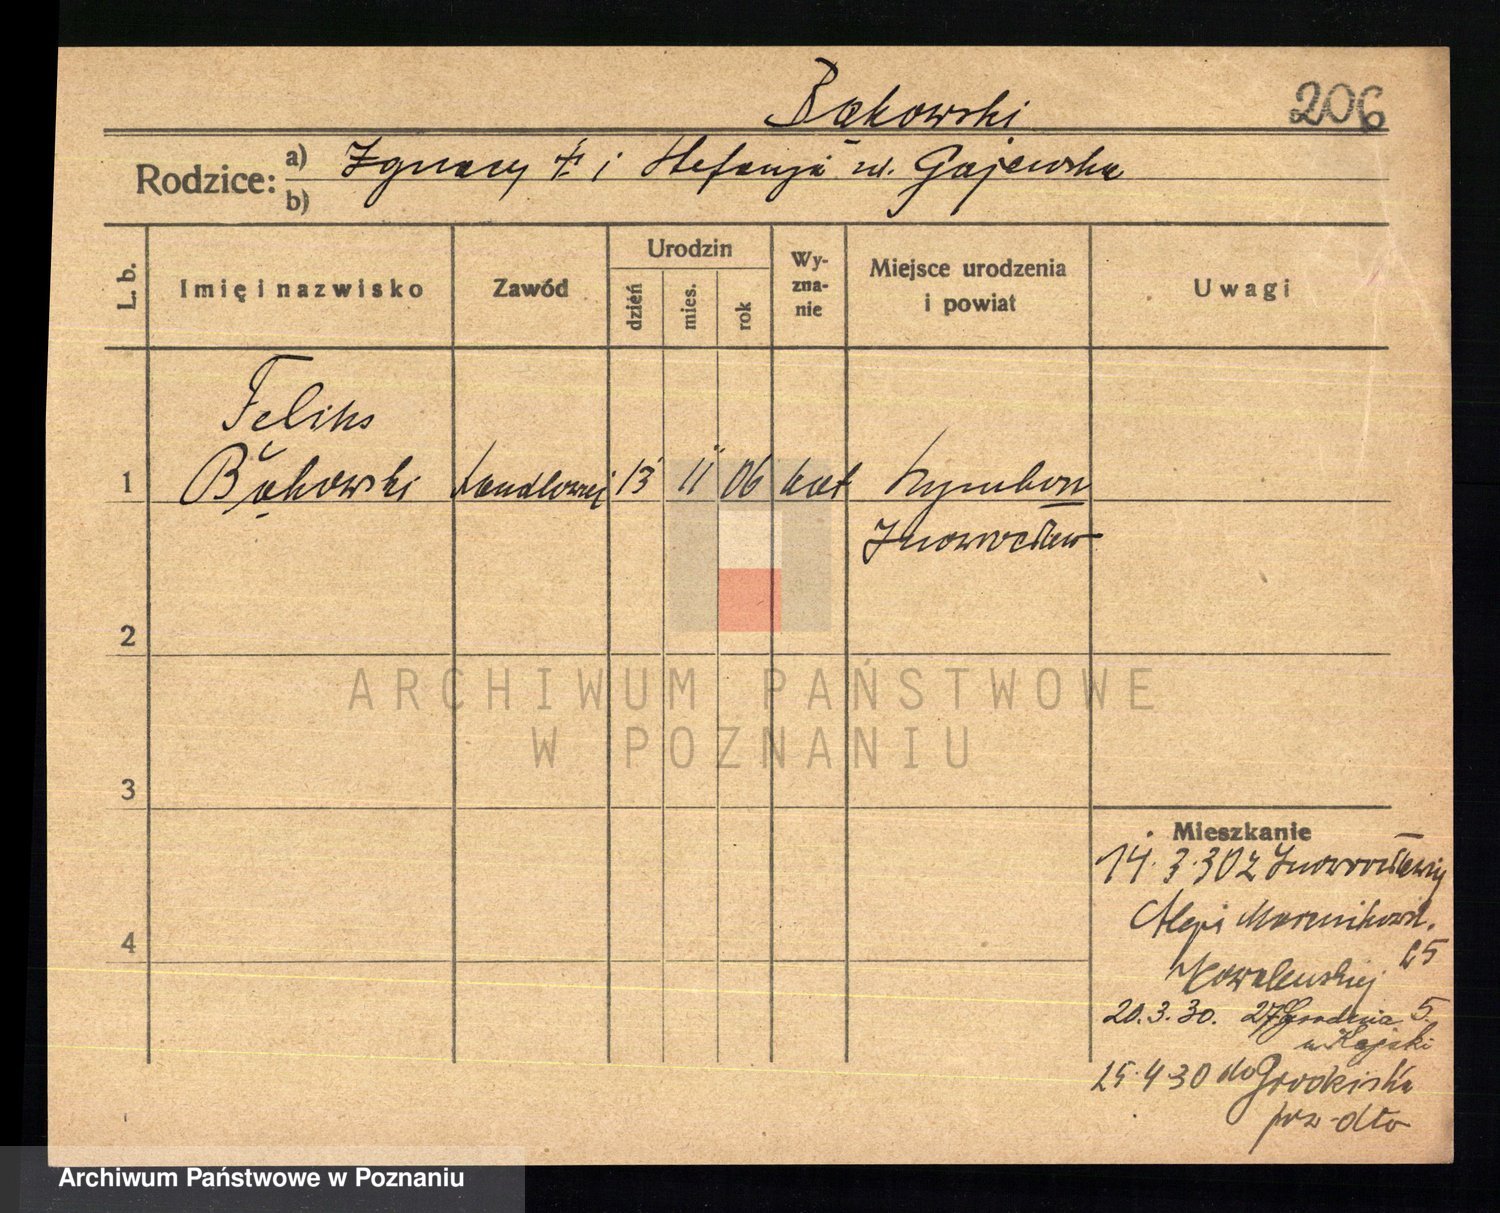 Bąkowski
206
Rodzice:
a) Ignacy i Stefanja ur. Gajewska
b)
L. b.
Imię i nazwisko
Zawód
Urodzin
dzień
mies.
rok
Wy-
zna-
nie
Miejsce urodzenia
i powiat
Uwagi
Feliks
1 Bąkowski handlowiec 13 11 06 kat
Inowrocław
2
3
4
ARCHIWUM PAŃSTWOWE
W POZNANIU
Mieszkanie
14.3.30 z Inowrocławia
Aleja Marcinkowsk.
20.3.30. 27 Grudnia 5.
25.4.30 do Grodziska
Archiwum Państwowe w Poznaniu